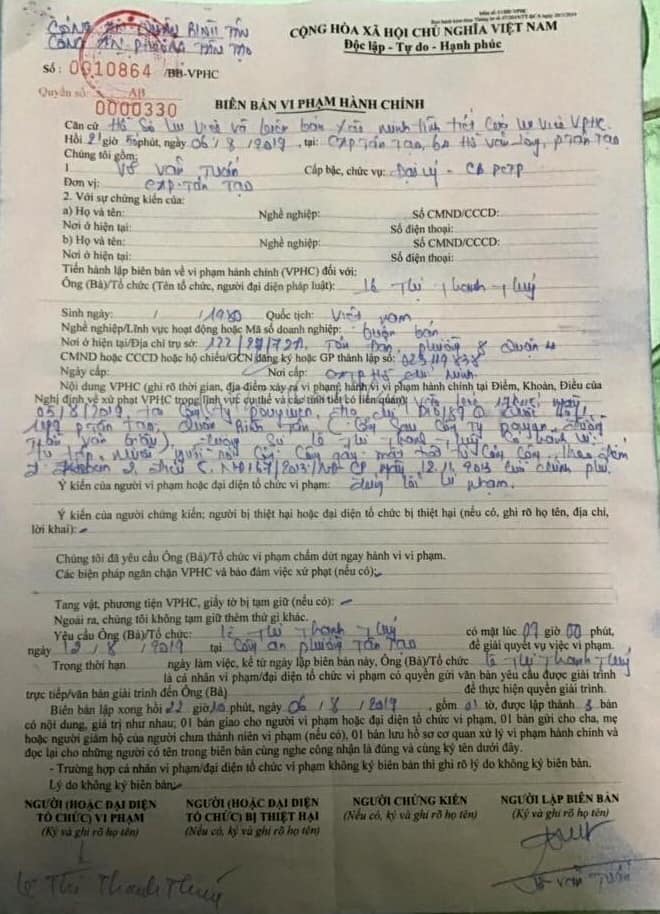 CÔNG AN QUẬN BÌNH TÂN
CÔNG AN PHƯỜNG TÂN TẠO
CỘNG HÒA XÃ HỘI CHỦ NGHĨA VIỆT NAM
Độc lập - Tự do - Hạnh phúc
Số: 0010864 /BB-VPHC
Quyển số: AB
0000330
BIÊN BẢN VI PHẠM HÀNH CHÍNH
Căn cứ Hồ sơ vụ việc và biên bản xác minh tình tiết của vụ việc VPHC.
Hồi 21 giờ 50 phút, ngày 06 / 8 / 2019, tại: CAP Tân Tạo, Hồ Văn Long, P Tân Tạo
Chúng tôi gồm:
1 Võ Văn Tuấn Cấp bậc, chức vụ: Đại úy - CB PCTP
Đơn vị: CAP. Tân Tạo
2. Với sự chứng kiến của:
a) Họ và tên: Nghề nghiệp: Số CMND/CCCD:
Nơi ở hiện tại: Số điện thoại:
b) Họ và tên: Nghề nghiệp: Số CMND/CCCD:
Nơi ở hiện tại: Số điện thoại:
Tiến hành lập biên bản về vi phạm hành chính (VPHC) đối với:
Ông (Bà)/Tổ chức (Tên tổ chức, người đại diện pháp luật): Lê Thị Thanh Thuý
Sinh ngày: / / 1980 Quốc tịch: Việt Nam
Nghề nghiệp/Lĩnh vực hoạt động hoặc Mã số doanh nghiệp: buôn bán
Nơi ở hiện tại/Địa chỉ trụ sở: Tôn Đản, phường 8 Quận 4
CMND hoặc CCCD hoặc hộ chiếu/GCN đăng ký hoặc GP thành lập số: 023119838
Ngày cấp: Nơi cấp: CATP Hồ Chí Minh
Nội dung VPHC (ghi rõ thời gian, địa điểm xảy ra vi phạm; hành vi vi phạm hành chính tại Điểm, Khoản, Điều của
Nghị định về xử phạt VPHC trong lĩnh vực cụ thể và các tình tiết có liên quan): Vào lúc ngày
05/8/2019, tại Công ty Pouyuen, địa chỉ D10/89Q Quốc lộ 1
P Tân Tạo, Quận Bình Tân (Cổng sau Công Ty đường
Trần Văn Giàu), đương sự Lê Thị Thanh Thuý có hành vi:
Tụ tập nhiều người nơi công cộng gây mất trật tự công cộng. Theo điểm
khoản 2 Điều 5. NĐ 167/2013/NĐ CP, ngày 12/11/2013 của chính phủ.
Ý kiến của người vi phạm hoặc đại diện tổ chức vi phạm: phạm.
Ý kiến của người chứng kiến; người bị thiệt hại hoặc đại diện tổ chức bị thiệt hại (nếu có, ghi rõ họ tên, địa chỉ,
lời khai):
Chúng tôi đã yêu cầu Ông (Bà)/Tổ chức vi phạm chấm dứt ngay hành vi vi phạm.
Các biện pháp ngăn chặn VPHC và bảo đảm việc xử phạt (nếu có):
Tang vật, phương tiện VPHC, giấy tờ bị tạm giữ (nếu có):
Ngoài ra, chúng tôi không tạm giữ thêm thứ gì khác.
Yêu cầu Ông (Bà)/Tổ chức: Lê Thị Thanh Thuý có mặt lúc 09 giờ 00 phút,
ngày 12 / 8 / 2019 tại Công an phường Tân Tạo để giải quyết vụ việc vi phạm.
Trong thời hạn ngày làm việc, kể từ ngày lập biên bản này, Ông (Bà)/Tổ chức Lê Thị Thanh Thuý
là cá nhân vi phạm/đại diện tổ chức vi phạm có quyền gửi văn bản yêu cầu được giải trình
trực tiếp/văn bản giải trình đến Ông (Bà) để thực hiện quyền giải trình.
Biên bản lập xong hồi 22 giờ 10 phút, ngày 06 / 8 / 2019, gồm 01 tờ, được lập thành 3 bản
có nội dung, giá trị như nhau; 01 bản giao cho người vi phạm hoặc đại diện tổ chức vi phạm, 01 bản gửi cho cha, mẹ
hoặc người giám hộ của người chưa thành niên vi phạm (nếu có), 01 bản lưu hồ sơ cơ quan xử lý vi phạm hành chính và
đọc lại cho những người có tên trong biên bản cùng nghe công nhận là đúng và cùng ký tên dưới đây.
- Trường hợp cá nhân vi phạm/đại diện tổ chức vi phạm không ký biên bản thì ghi rõ lý do không ký biên bản.
Lý do không ký biên bản:
NGƯỜI (HOẶC ĐẠI DIỆN TỔ CHỨC) VI PHẠM
(Ký và ghi rõ họ tên)
NGƯỜI (HOẶC ĐẠI DIỆN TỔ CHỨC) BỊ THIỆT HẠI
(Nếu có, ký và ghi rõ họ tên)
NGƯỜI CHỨNG KIẾN
(Nếu có, ký và ghi rõ họ tên)
NGƯỜI LẬP BIÊN BẢN
(Ký và ghi rõ họ tên)
Lê Thị Thanh Thuý
Võ Văn Tuấn